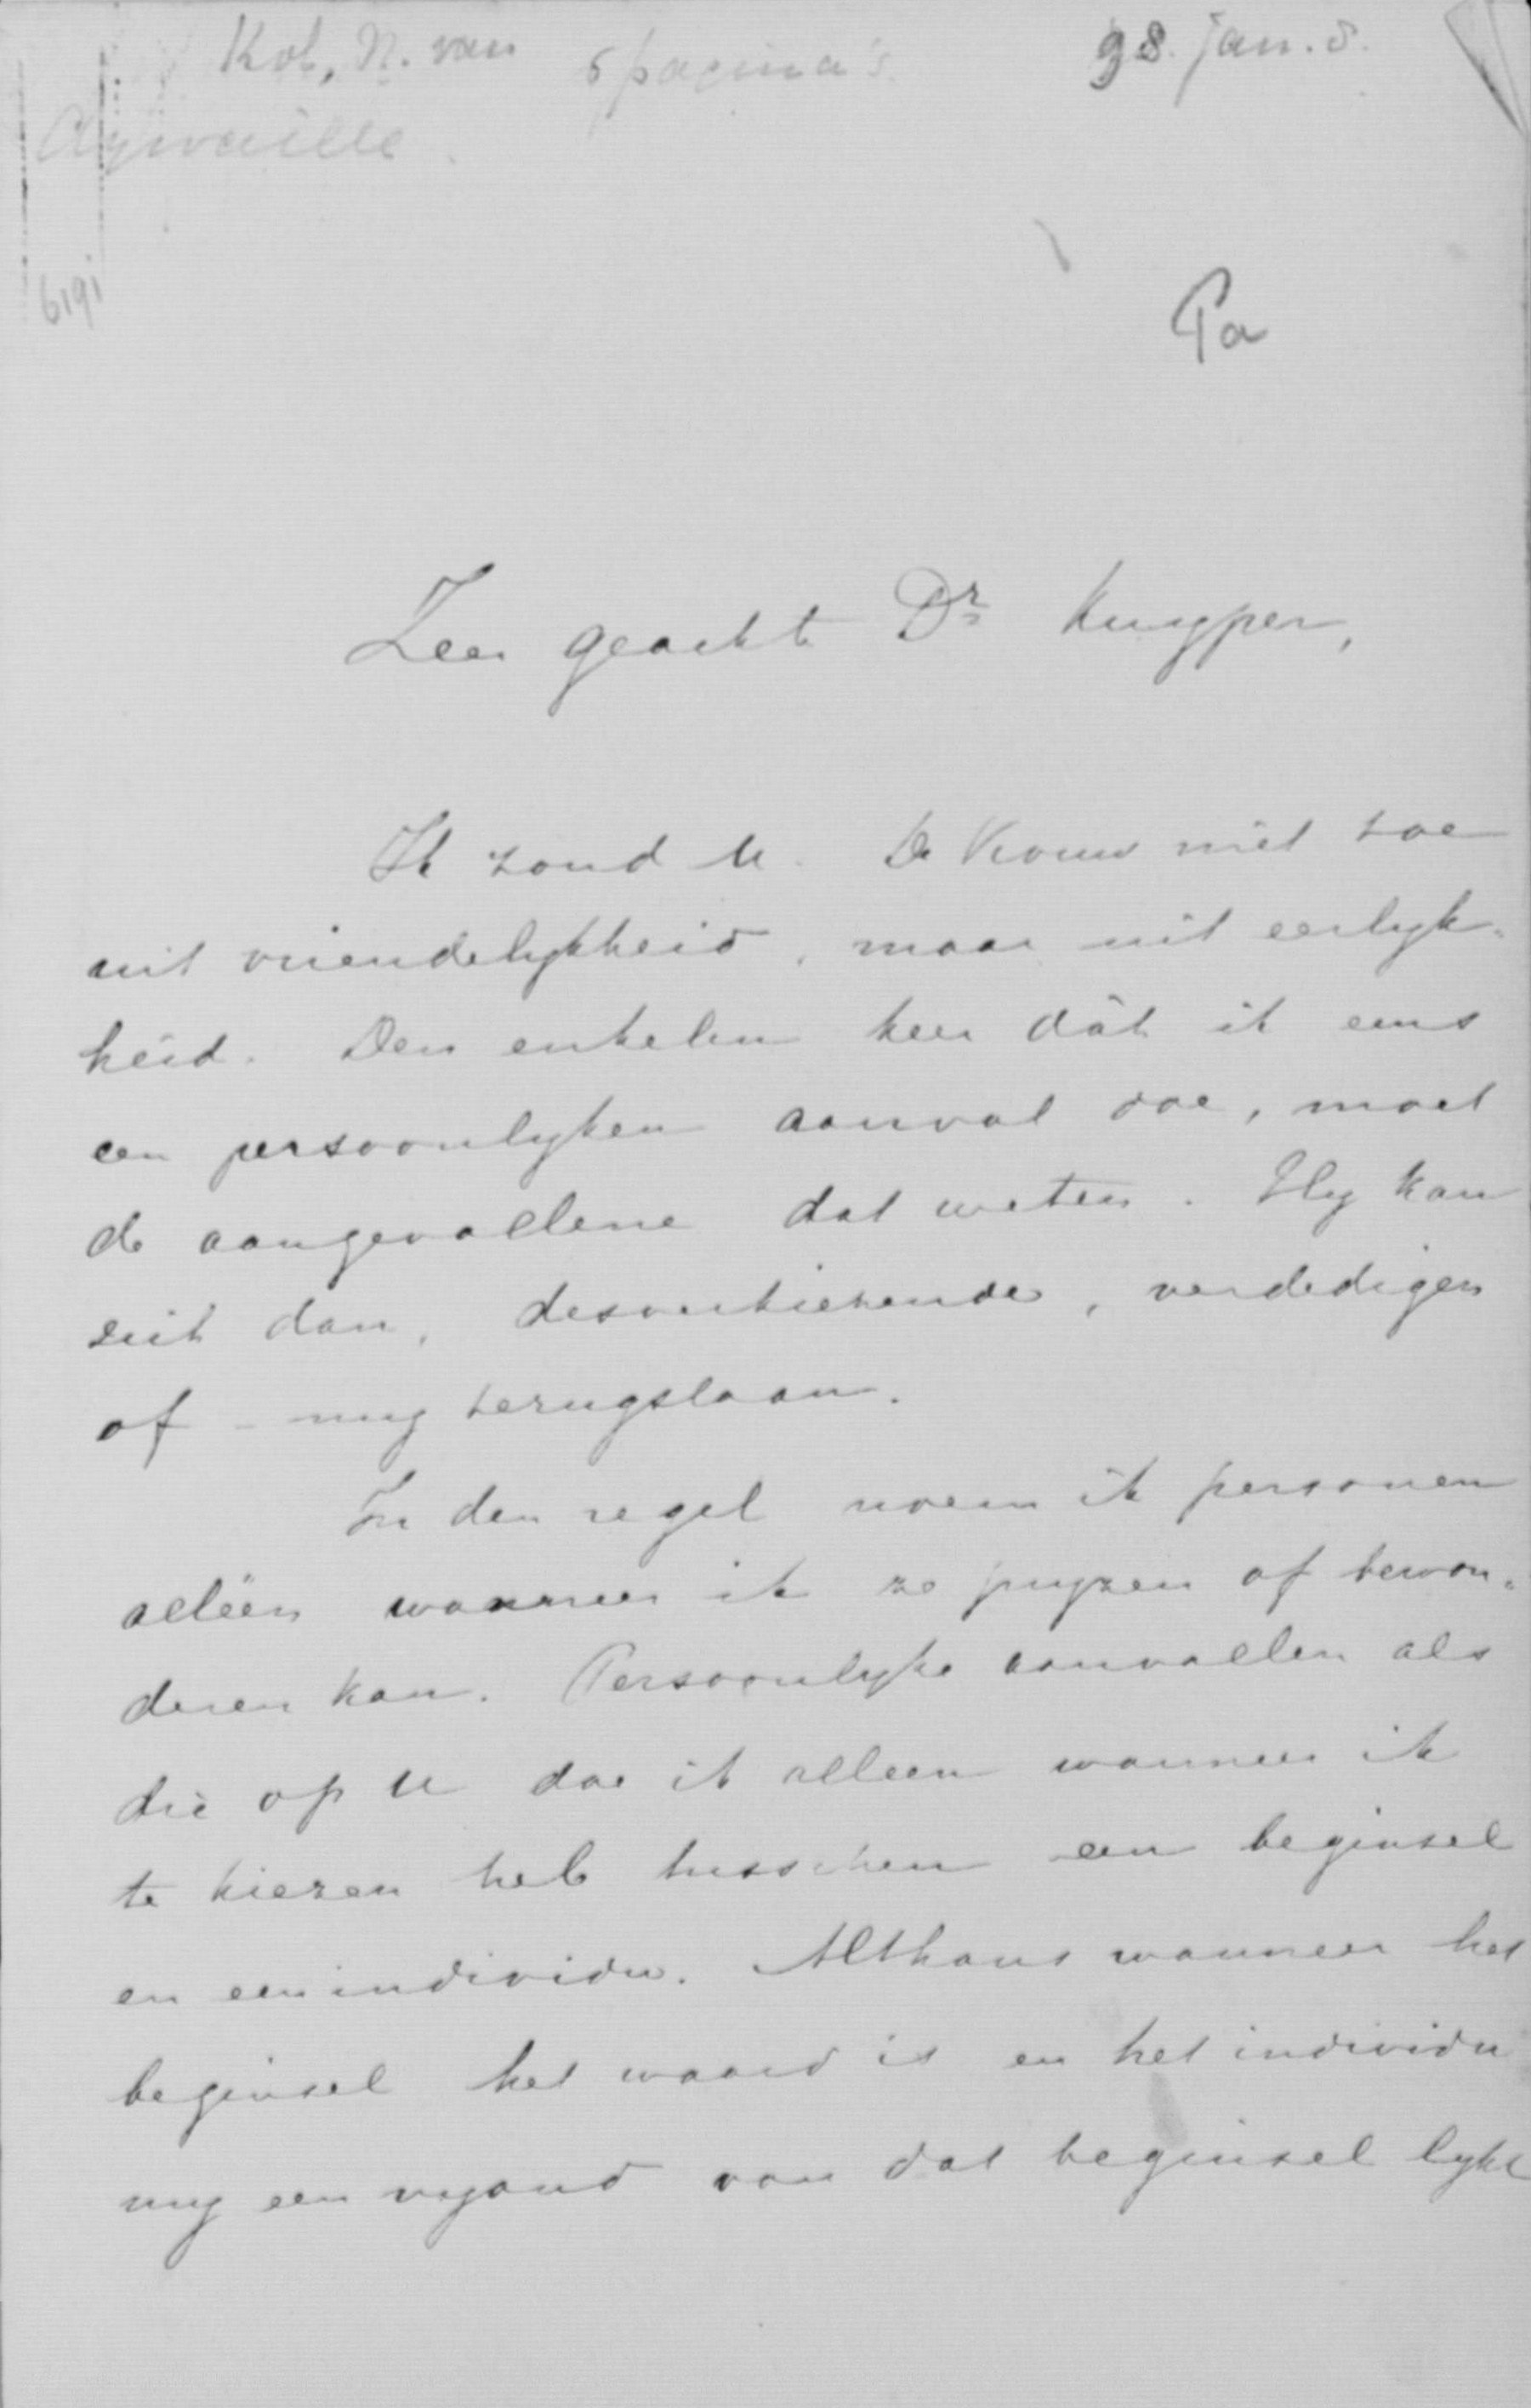 Kol, N. van 6 pagina's. 98. jan. 8.
Aywaille.
6191
Pa
Zeer geacht Dr Kuyper,
Ik zond U. De Vrouw niet toe
uit vriendelykheid, maar uit eerlyk-
heid. Den enkelen keer dàt ik eens
een persoonlyken aanval doe, moet
de aangevallene dat weten. Hy kan
zich dan, desverkiezende, verdedigen
of – my terugslaan.
In den regel noem ik personen
alléén wanneer ik ze pryzen of bewon-
deren kan. Persoonlyke aanvallen als
die op U doe ik alleen wanneer ik
te kiezen heb tusschen een beginsel
en een individu. Althans wanneer het
beginsel het waard is en het individu
my een vyand van dat beginsel lykt